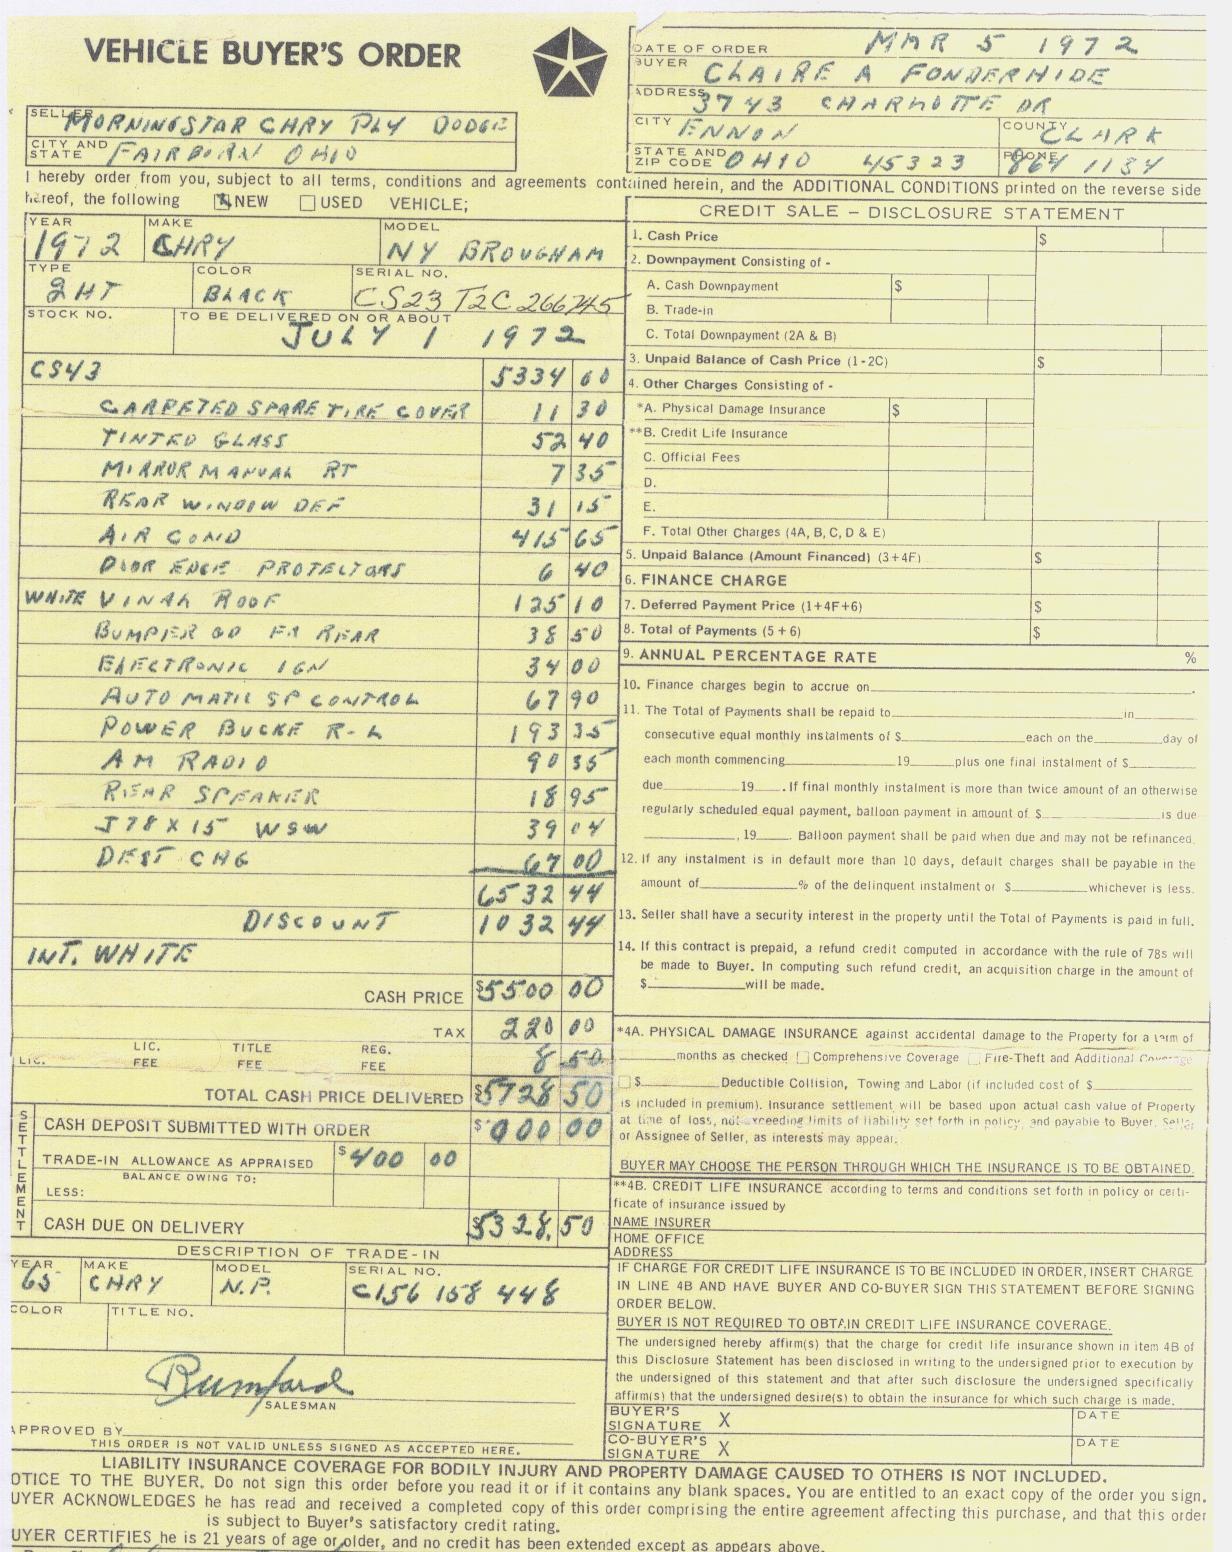 VEHICLE BUYER'S ORDER
DATE OF ORDER MAR 5 1972
BUYER CLAIRE A FONDERHIDE
ADDRESS 3743 CHARLOTTE DR
CITY ENNON COUNTY CLARK
STATE AND ZIP CODE OHIO 45323 PHONE 864 1134
SELLER MORNINGSTAR CHRY PLY DODGE
CITY AND STATE FAIRBORN OHIO
I hereby order from you, subject to all terms, conditions and agreements contained herein, and the ADDITIONAL CONDITIONS printed on the reverse side
hereof, the following NEW USED VEHICLE;
YEAR 1972 MAKE CHRY MODEL NY BROUGHAM
TYPE 2HT COLOR BLACK SERIAL NO. CS23T2C266745
STOCK NO. TO BE DELIVERED ON OR ABOUT JULY 1 1972
CS43 5334 60
CARPETED SPARE TIRE COVER 11 30
TINTED GLASS 52 40
MIRROR MANUAL RT 7 35
REAR WINDOW DEF 31 15
AIR COND 415 65
DOOR EDGE PROTECTORS 6 40
WHITE VINAL ROOF 125 10
BUMPER GD FR REAR 38 50
ELECTRONIC IGN 34 00
AUTO MATIC SP CONTROL 67 90
POWER BUCKE R-L 193 35
AM RADIO 90 35
REAR SPEAKER 18 95
J78X15 WSW 39 04
DEST CHG 67 00
6532 44
DISCOUNT 1032 44
INT. WHITE
CASH PRICE $5500 00
TAX 220 00
LIC. LIC. FEE TITLE FEE REG. FEE 8 50
TOTAL CASH PRICE DELIVERED $5728 50
SETTLEMENT
CASH DEPOSIT SUBMITTED WITH ORDER $000 00
TRADE-IN ALLOWANCE AS APPRAISED $400 00
BALANCE OWING TO:
LESS:
CASH DUE ON DELIVERY 5328.50
DESCRIPTION OF TRADE-IN
YEAR 65 MAKE CHRY MODEL N.P. SERIAL NO. C156 158 448
COLOR TITLE NO.
Rumford
SALESMAN
APPROVED BY
THIS ORDER IS NOT VALID UNLESS SIGNED AS ACCEPTED HERE.
CREDIT SALE – DISCLOSURE STATEMENT
1. Cash Price $
2. Downpayment Consisting of -
A. Cash Downpayment $
B. Trade-in
C. Total Downpayment (2A & B)
3. Unpaid Balance of Cash Price (1-2C) $
4. Other Charges Consisting of -
*A. Physical Damage Insurance $
**B. Credit Life Insurance
C. Official Fees
D.
E.
F. Total Other Charges (4A, B, C, D & E)
5. Unpaid Balance (Amount Financed) (3+4F) $
6. FINANCE CHARGE
7. Deferred Payment Price (1+4F+6) $
8. Total of Payments (5 + 6) $
9. ANNUAL PERCENTAGE RATE %
10. Finance charges begin to accrue on .
11. The Total of Payments shall be repaid to in
consecutive equal monthly instalments of $ each on the day of
each month commencing 19 plus one final instalment of $
due 19 . If final monthly instalment is more than twice amount of an otherwise
regularly scheduled equal payment, balloon payment in amount of $ is due
, 19 . Balloon payment shall be paid when due and may not be refinanced.
12. If any instalment is in default more than 10 days, default charges shall be payable in the
amount of % of the delinquent instalment or $ whichever is less.
13. Seller shall have a security interest in the property until the Total of Payments is paid in full.
14. If this contract is prepaid, a refund credit computed in accordance with the rule of 78s will
be made to Buyer. In computing such refund credit, an acquisition charge in the amount of
$ will be made.
*4A. PHYSICAL DAMAGE INSURANCE against accidental damage to the Property for a term of
months as checked Comprehensive Coverage Fire-Theft and Additional Coverage
$ Deductible Collision, Towing and Labor (if included cost of $
is included in premium). Insurance settlement will be based upon actual cash value of Property
at time of loss, not exceeding limits of liability set forth in policy, and payable to Buyer, Seller
or Assignee of Seller, as interests may appear.
BUYER MAY CHOOSE THE PERSON THROUGH WHICH THE INSURANCE IS TO BE OBTAINED.
**4B. CREDIT LIFE INSURANCE according to terms and conditions set forth in policy or certi-
ficate of insurance issued by
NAME INSURER
HOME OFFICE ADDRESS
IF CHARGE FOR CREDIT LIFE INSURANCE IS TO BE INCLUDED IN ORDER, INSERT CHARGE
IN LINE 4B AND HAVE BUYER AND CO-BUYER SIGN THIS STATEMENT BEFORE SIGNING
ORDER BELOW.
BUYER IS NOT REQUIRED TO OBTAIN CREDIT LIFE INSURANCE COVERAGE.
The undersigned hereby affirm(s) that the charge for credit life insurance shown in item 4B of
this Disclosure Statement has been disclosed in writing to the undersigned prior to execution by
the undersigned of this statement and that after such disclosure the undersigned specifically
affirm(s) that the undersigned desire(s) to obtain the insurance for which such charge is made.
BUYER'S SIGNATURE X DATE
CO-BUYER'S SIGNATURE X DATE
LIABILITY INSURANCE COVERAGE FOR BODILY INJURY AND PROPERTY DAMAGE CAUSED TO OTHERS IS NOT INCLUDED.
OTICE TO THE BUYER. Do not sign this order before you read it or if it contains any blank spaces. You are entitled to an exact copy of the order you sign.
UYER ACKNOWLEDGES he has read and received a completed copy of this order comprising the entire agreement affecting this purchase, and that this order
is subject to Buyer's satisfactory credit rating.
UYER CERTIFIES he is 21 years of age or older, and no credit has been extended except as appears above.